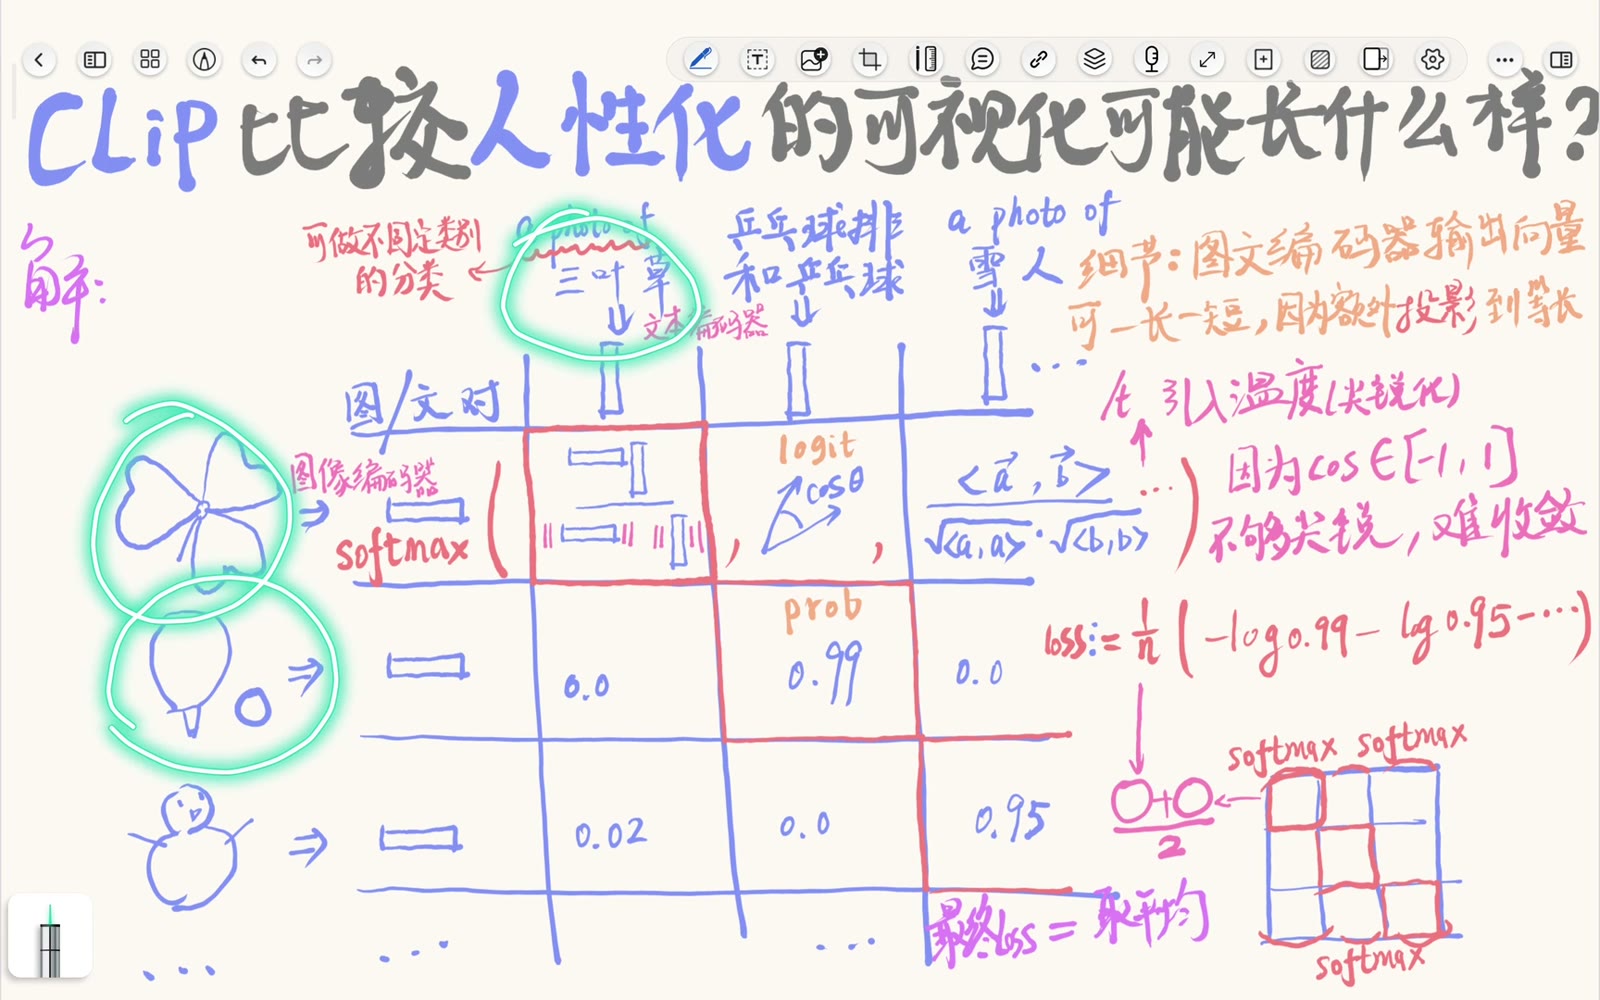 CLiP 比较人性化的可视化可能长什么样?
解:
可做不固定类别
的分类
a photo of
三叶草
乒乓球排
和乒乓球
a photo of
雪人
...
文本编码器
细节:图文编码器输出向量
可一长一短,因为额外投影到等长
/t 引入温度(尖锐化)
因为cos∈[-1,1]
不够尖锐,难收敛
图/文对
图像编码器
softmax (
logit
cosθ
, ,
<a⃗,b⃗>
√<a,a>·√<b,b>
... )
prob
0.0 0.99 0.0
loss:= 1/n (-log0.99- log0.95-...)
0.02 0.0 0.95
O+O
2
softmax softmax
softmax
最终loss = 取平均
... ... ...